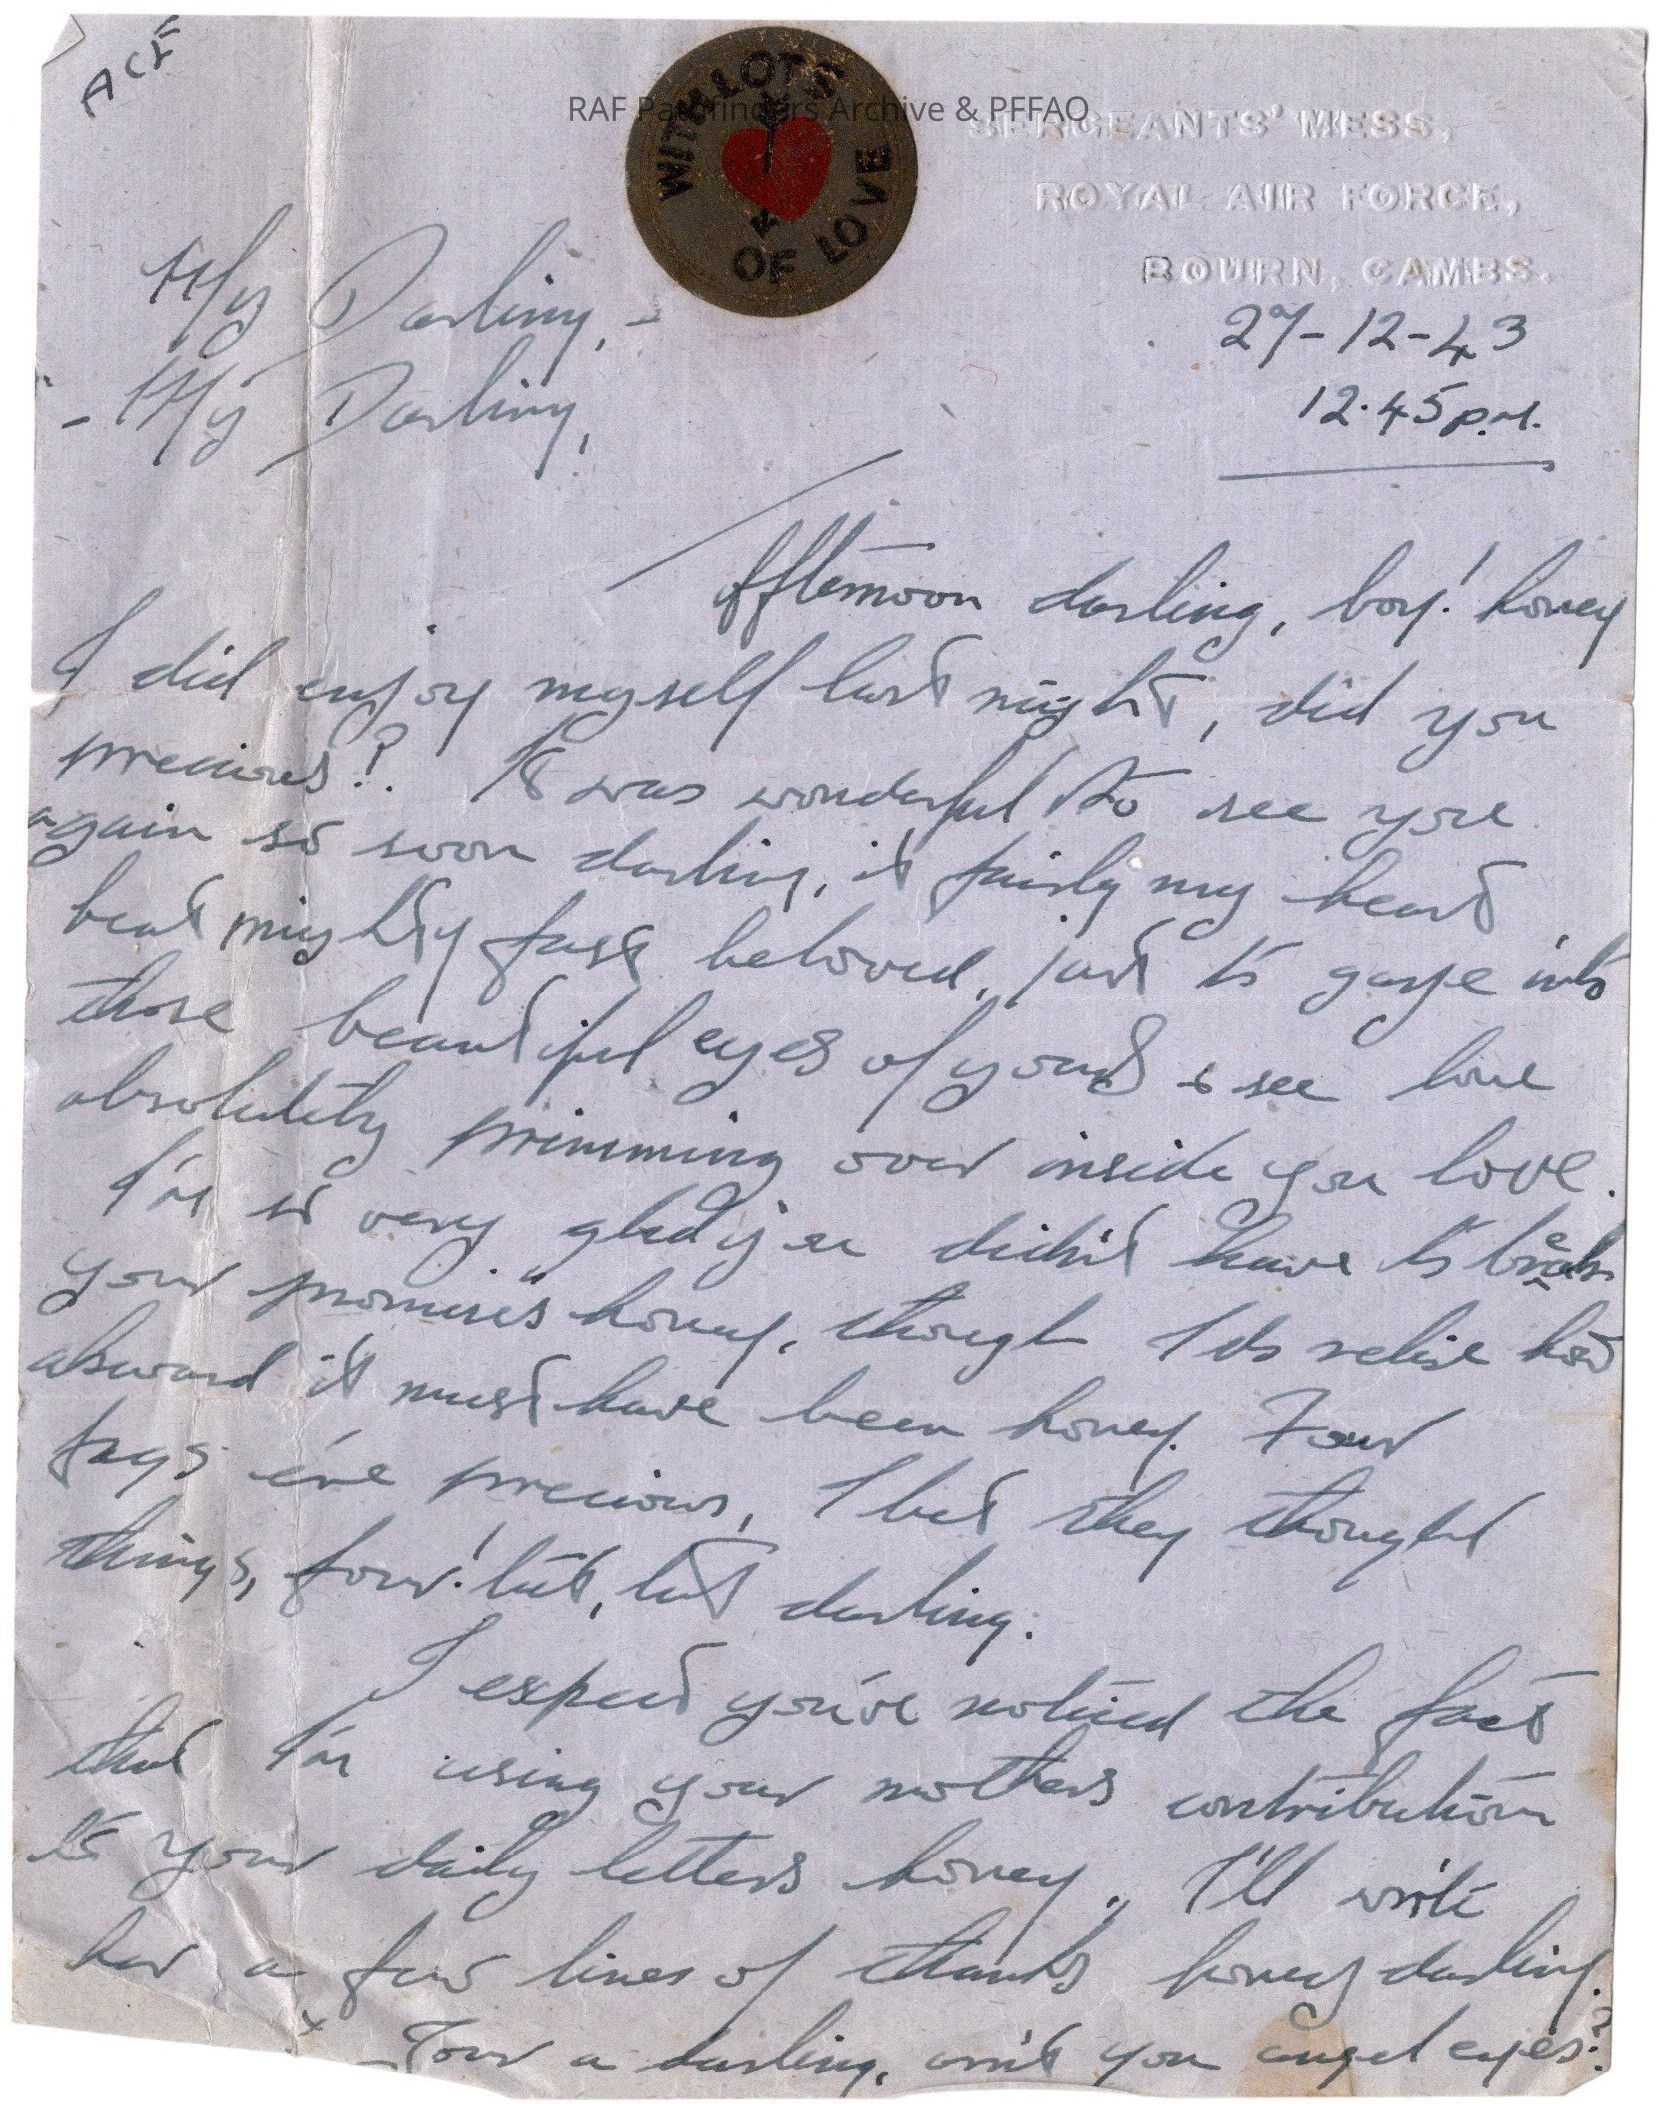 ACE
WITH LOTS OF LOVE
RAF Pathfinders Archive & PFFAO
SERGEANTS' MESS,
ROYAL AIR FORCE,
BOURN, CAMBS.
27-12-43
12.45 p.m.
My Darling, -
- My Darling,
Afternoon darling, boy! honey
I did enjoy myself last night, did you
precious? It was wonderful to see you
again so soon darling, it fairly my heart
beat mighty fast beloved, just to gaze into
those beautiful eyes of yours & see love
absolutely primming over inside you love.
I'm so very glad you didn't have to break
your promises honey, though I do relise how
akward it must have been honey. Four
fags eve precious, I bet they thought
things, four! tut, tut darling.
I expect you've noticed the fact
that I'm using your mothers contribution
to your daily letters honey, I'll write
her a few lines of thanks honey darling.
x - Your a darling, arn't you angel eyes?